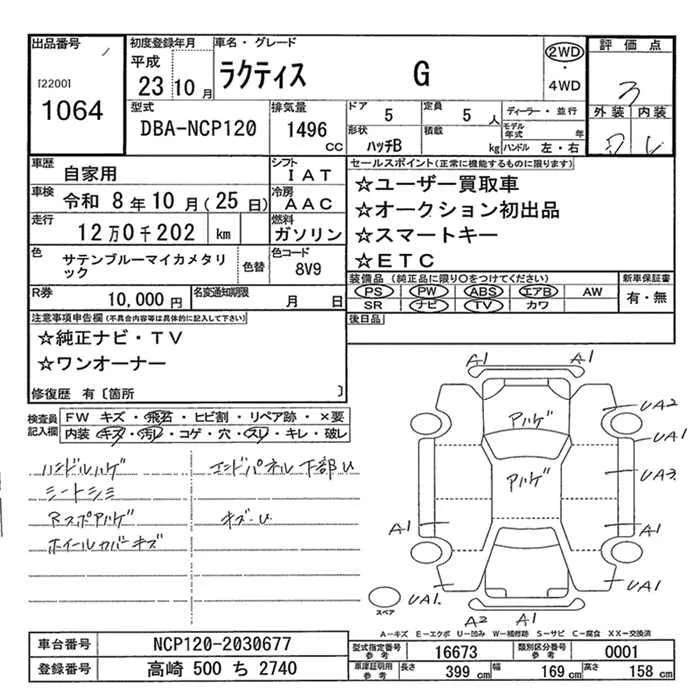 出品番号
[2200]
1064
初度登録年月
平成
23 10月
車名・グレード
ラクティス G
2WD
・
4WD
評価点
3
外装 内装
型式
DBA-NCP120
排気量
1496 CC
ドア 5
定員 5 人
形状 ハッチB
積載 kg
ディーラー・並行
モデル年式 年
ハンドル 左・右
車歴 自家用
シフト IAT
車検 令和 8年10月(25日)
冷房 AAC
走行 12万0千202 km
燃料 ガソリン
色 サテンブルーマイカメタリック
色替
色コード 8V9
R券 10,000円
名変通知期限 月 日
セールスポイント(正常に機能するものに限ります)
☆ユーザー買取車
☆オークション初出品
☆スマートキー
☆ETC
装備品 (純正品に限り○をつけてください)
PS PW ABS エアB AW
SR ナビ TV カワ
新車保証書
有・無
後日品
注意事項申告欄(不具合内容等は具体的に記入して下さい)
☆純正ナビ・TV
☆ワンオーナー
修復歴 有〔箇所 〕
検査員記入欄
FW キズ・飛石・ヒビ割・リペア跡・×要
内装 キズ・汚レ・コゲ・穴・スレ・キレ・破レ
ハンドルハゲ
シートシミ
アスポアハゲ
ホイールカバーキズ
エンドパネル下部U
キズ-U
A1
A1
UA2
UA1
アハゲ
UA3
アハゲ
A1
A1
UA1.
UA1.
A2 A1
スペア
A-キズ E-エクボ U-凹み W-補修跡 S-サビ C-腐食 XX-交換済
車台番号 NCP120-2030677
登録番号 高崎 500 ち 2740
型式指定番号 参考 16673
類別区分番号 参考 0001
車庫証明用 参考
長さ 399 cm
幅 169 cm
高さ 158 cm